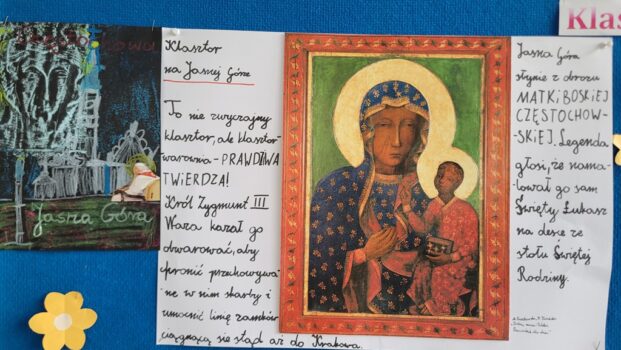 Częstochowa
Jasna Góra
Klasztor
na Jasnej Górze
To nie zwyczajny
klasztor, ale klasztor-
warownia - PRAWDZIWA
TWIERDZA!
Król Zygmunt III
Waza kazał go
obwarować, aby
chronić przechowywa-
ne w nim skarby i
umocnić linię zamków
ciągnącą się stąd aż do Krakowa.
Jasna Góra
słynie z obrazu
MATKI BOSKIEJ
CZĘSTOCHOW-
SKIEJ. Legenda
głosi, że nama-
lował go sam
Święty Łukasz
na desce ze
stołu Świętej
Rodziny.
Klas